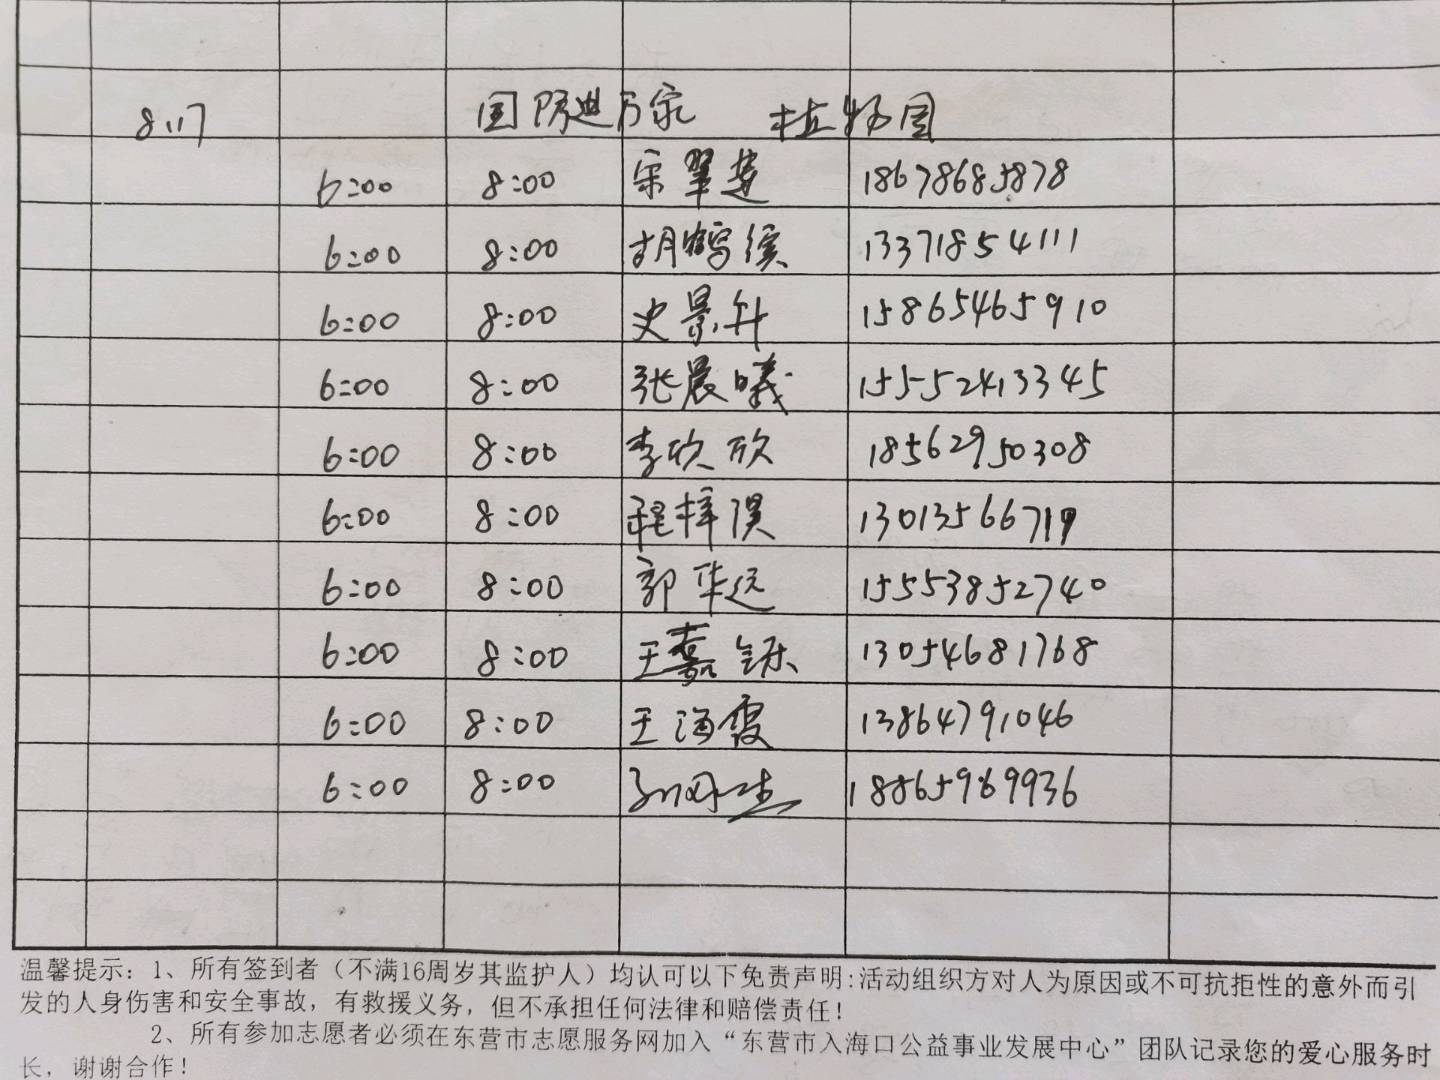 8.17 国防进万家 植物园
6:00 8:00 宋翠莲 18678685878
6:00 8:00 胡鹤缤 13371854111
6:00 8:00 史景升 15865465910
6:00 8:00 张晨曦 15552413345
6:00 8:00 李欣欣 18562950308
6:00 8:00 程梓淇 13013566719
6:00 8:00 郭华远 15553852740
6:00 8:00 王嘉铄 13054681768
6:00 8:00 王海霞 13864791046
6:00 8:00 18865969936
温馨提示:1、所有签到者（不满16周岁其监护人）均认可以下免责声明:活动组织方对人为原因或不可抗拒性的意外而引
发的人身伤害和安全事故，有救援义务，但不承担任何法律和赔偿责任！
2、所有参加志愿者必须在东营市志愿服务网加入“东营市入海口公益事业发展中心”团队记录您的爱心服务时
长，谢谢合作！